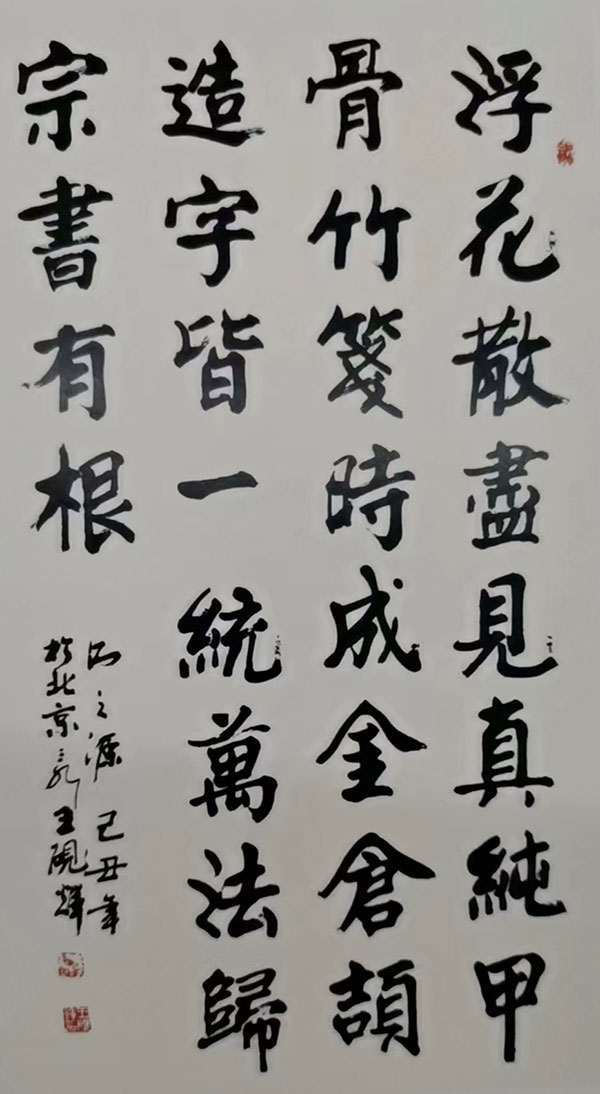 浮花散盡見真純甲
骨竹箋時成金倉頡
造字皆一統萬法歸
宗書有根
之源 己丑年
於北京 王硯輝